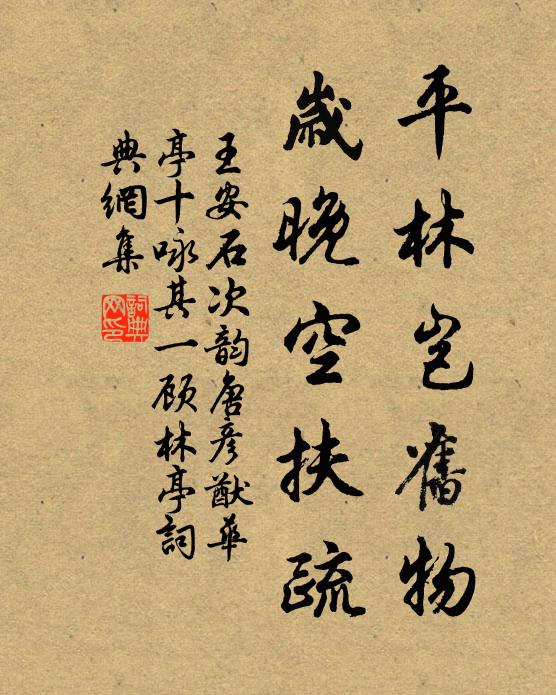 平林岂舊物
歲晚空扶疏
王安石次韵唐彦猷華
亭十咏其一顾林亭詞
典網集
詞典
网印